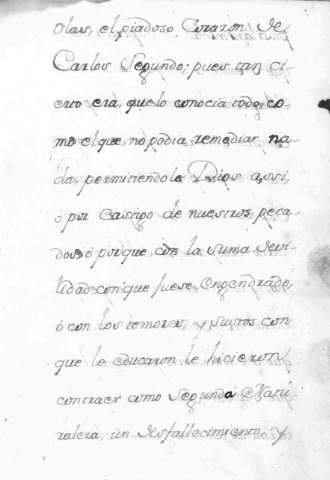 olas, el piadoso Corazon de
Carlos Segundo; pues tan ci
erto era, que lo conocia todo, co
mo el que, no podia remediar na
da, permitiendolo Dios assi,
ó por Castigo de nuestros peca
dos, ó porque, con la suma devi
lidad con que fuese engendrado,
ó con los temores, y sustos con
que le educaron le hicieron
contraer como segunda Natu
raleza, un desfallecimiento, y